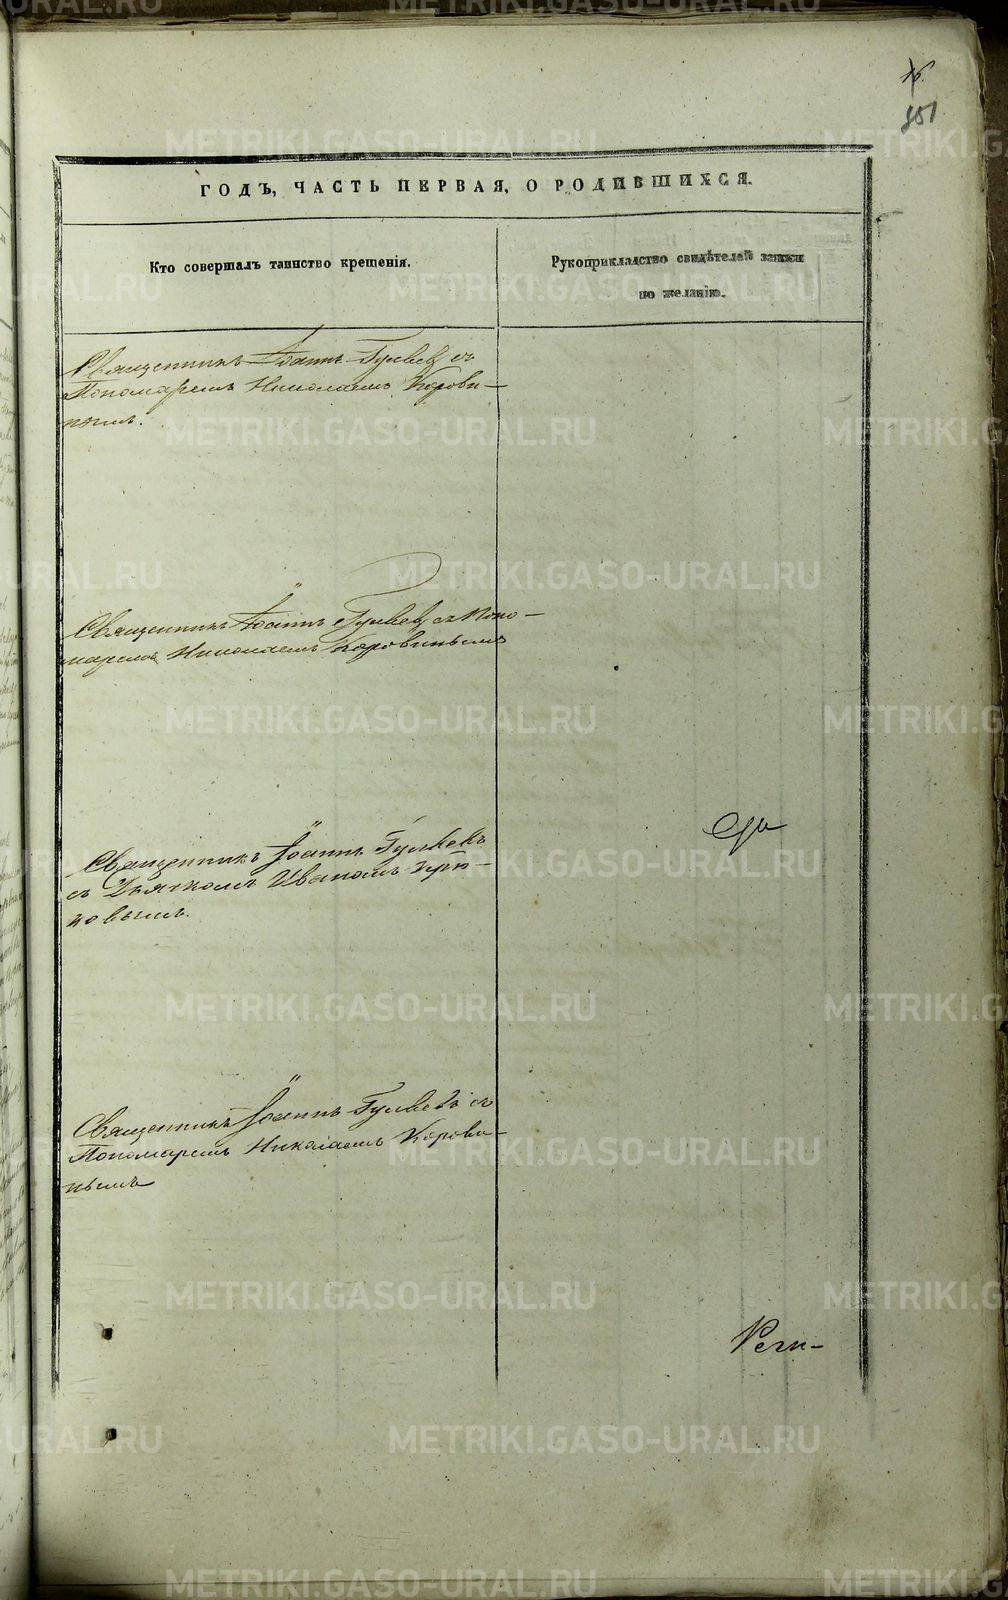 351
ГОДЪ, ЧАСТЬ ПЕРВАЯ, О РОДИВШИХСЯ.
Кто совершалъ таинство крещенія.
Рукоприкладство свидѣтелей записи
по желанію.
Священникъ Іоаннъ Гуляевъ съ
Пономаремъ Николаемъ Корови-
нымъ.
Священникъ Іоаннъ Гуляевъ съ Поно-
маремъ Николаемъ Коровинымъ
Священникъ Іоаннъ Гуляевъ
съ Дьячкомъ Иваномъ Крю-
ковымъ.
Священникъ Іоаннъ Гуляевъ съ
Пономаремъ Николаемъ Корови-
нымъ
METRIKI.GASO-URAL.RU